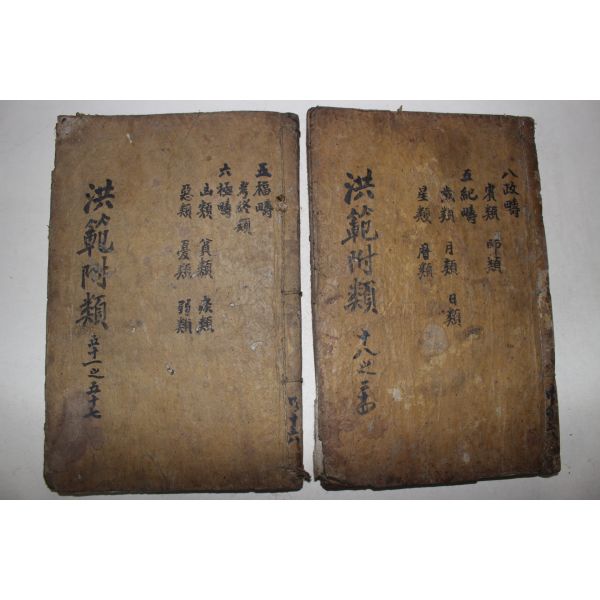 八政疇
賓類 師類
五紀疇
歲類 月類 日類
星類 曆類
洪範附類
十八之
五福疇
考終類
六極疇
凶類 貧類 疾類
惡類 憂類 弱類
洪範附類
五十一之五十七